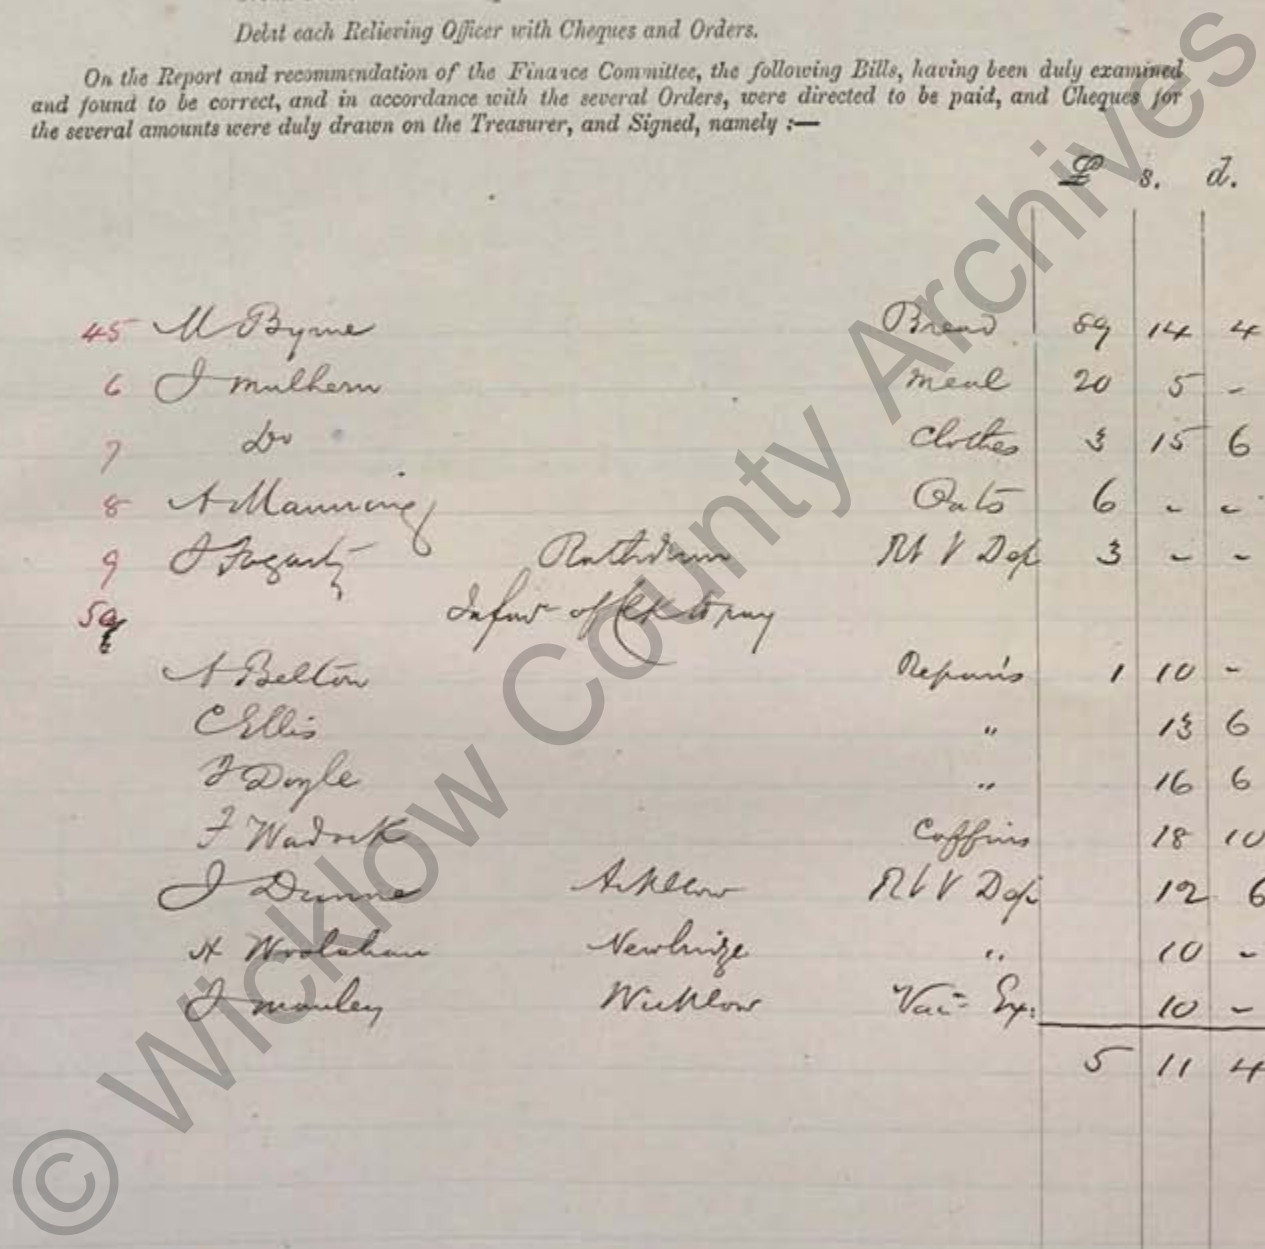 Debit each Relieving Officer with Cheques and Orders.
On the Report and recommendation of the Finance Committee, the following Bills, having been duly examined
and found to be correct, and in accordance with the several Orders, were directed to be paid, and Cheques for
the several amounts were duly drawn on the Treasurer, and Signed, namely :—
£ s. d.
45 M Byrne Bread 89 14 4
6 J Mulhern Meal 20 5 -
7 Do Clothes 3 15 6
8 A Manning Oats 6 - -
9 J Fogarty Rathdrum Rt V Dep 3 - -
In favr of Clk to pay
A Belton Repairs 1 10 -
C Ellis " 13 6
J Doyle " 16 6
F Wadock Coffins 18 10
J Dunne Arklow Rt V Dep 12 6
Woolahan Newbridge " 10 -
J Manley Wicklow Vac- Ex. 10 -
5 11 4
© Wicklow County Archives